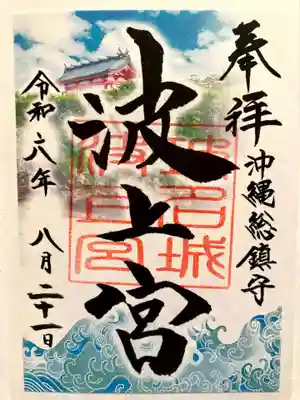 奉拝
沖縄総鎮守
波上宮
波上宮
令和六年
八月二十一日